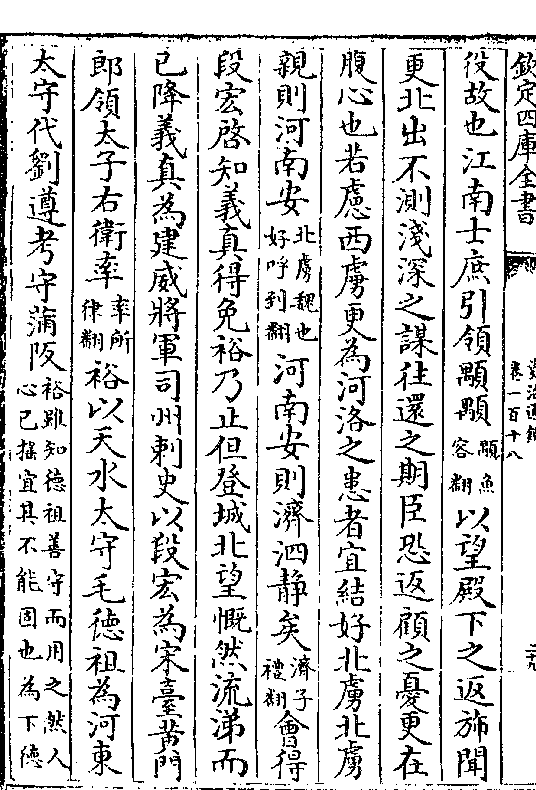 欽定四庫全書
卷一百十八
役故也江南士庶引領顒顒顒魚容翻以望殿下之返斾聞
更北出不測淺深之謀往還之期臣恐返顧之憂更在
腹心也若慮西虜更為河洛之患者宜結好北虜北虜
親則河南安北虜魏也好呼到翻河南安則濟泗靜矣濟子禮翻會得
段宏啓知義真得免裕乃止但登城北望慨然流涕而
已降義真為建威將軍司州刺史以段宏為宋臺黃門
郎領太子右衛率率所律翻裕以天水太守毛德祖為河東
太守代劉遵考守蒲阪裕雖知德祖善守而用之然人心已揺宜其不能固也為下德